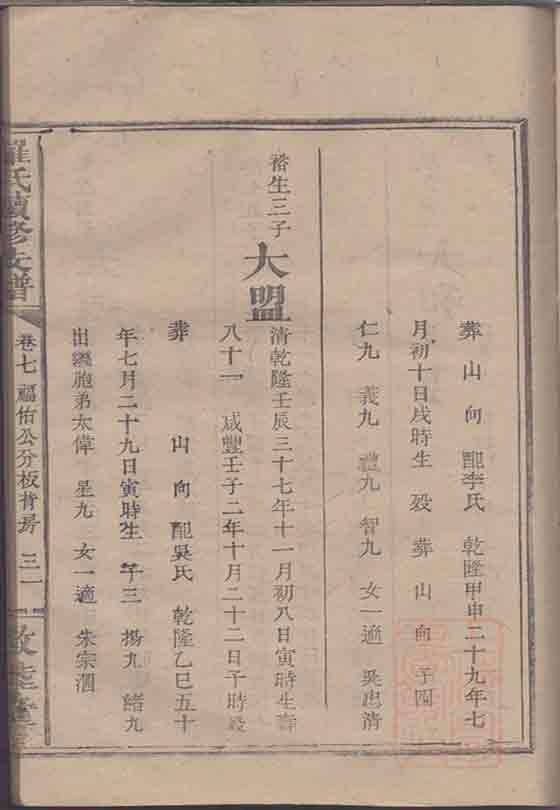 葬 山 向 配李氏 乾隆甲申二十九年七
月初十日戌時生 歿 葬 山 向 子四
仁九 義九 禮九 智九 女一適 吳忠清
裕生三子 大盟 清乾隆壬辰三十七年十一月初八日寅時生壽
八十一 咸豐壬子二年十月二十二日子時歿
葬 山 向 配吳氏 乾隆乙巳五十
年七月二十九日寅時生 子三 揚九 緒九
出繼胞弟大偉 星九 女一適 朱宗泗
羅氏續修支譜 卷七 福佑公分板背房 三一 敦 堂